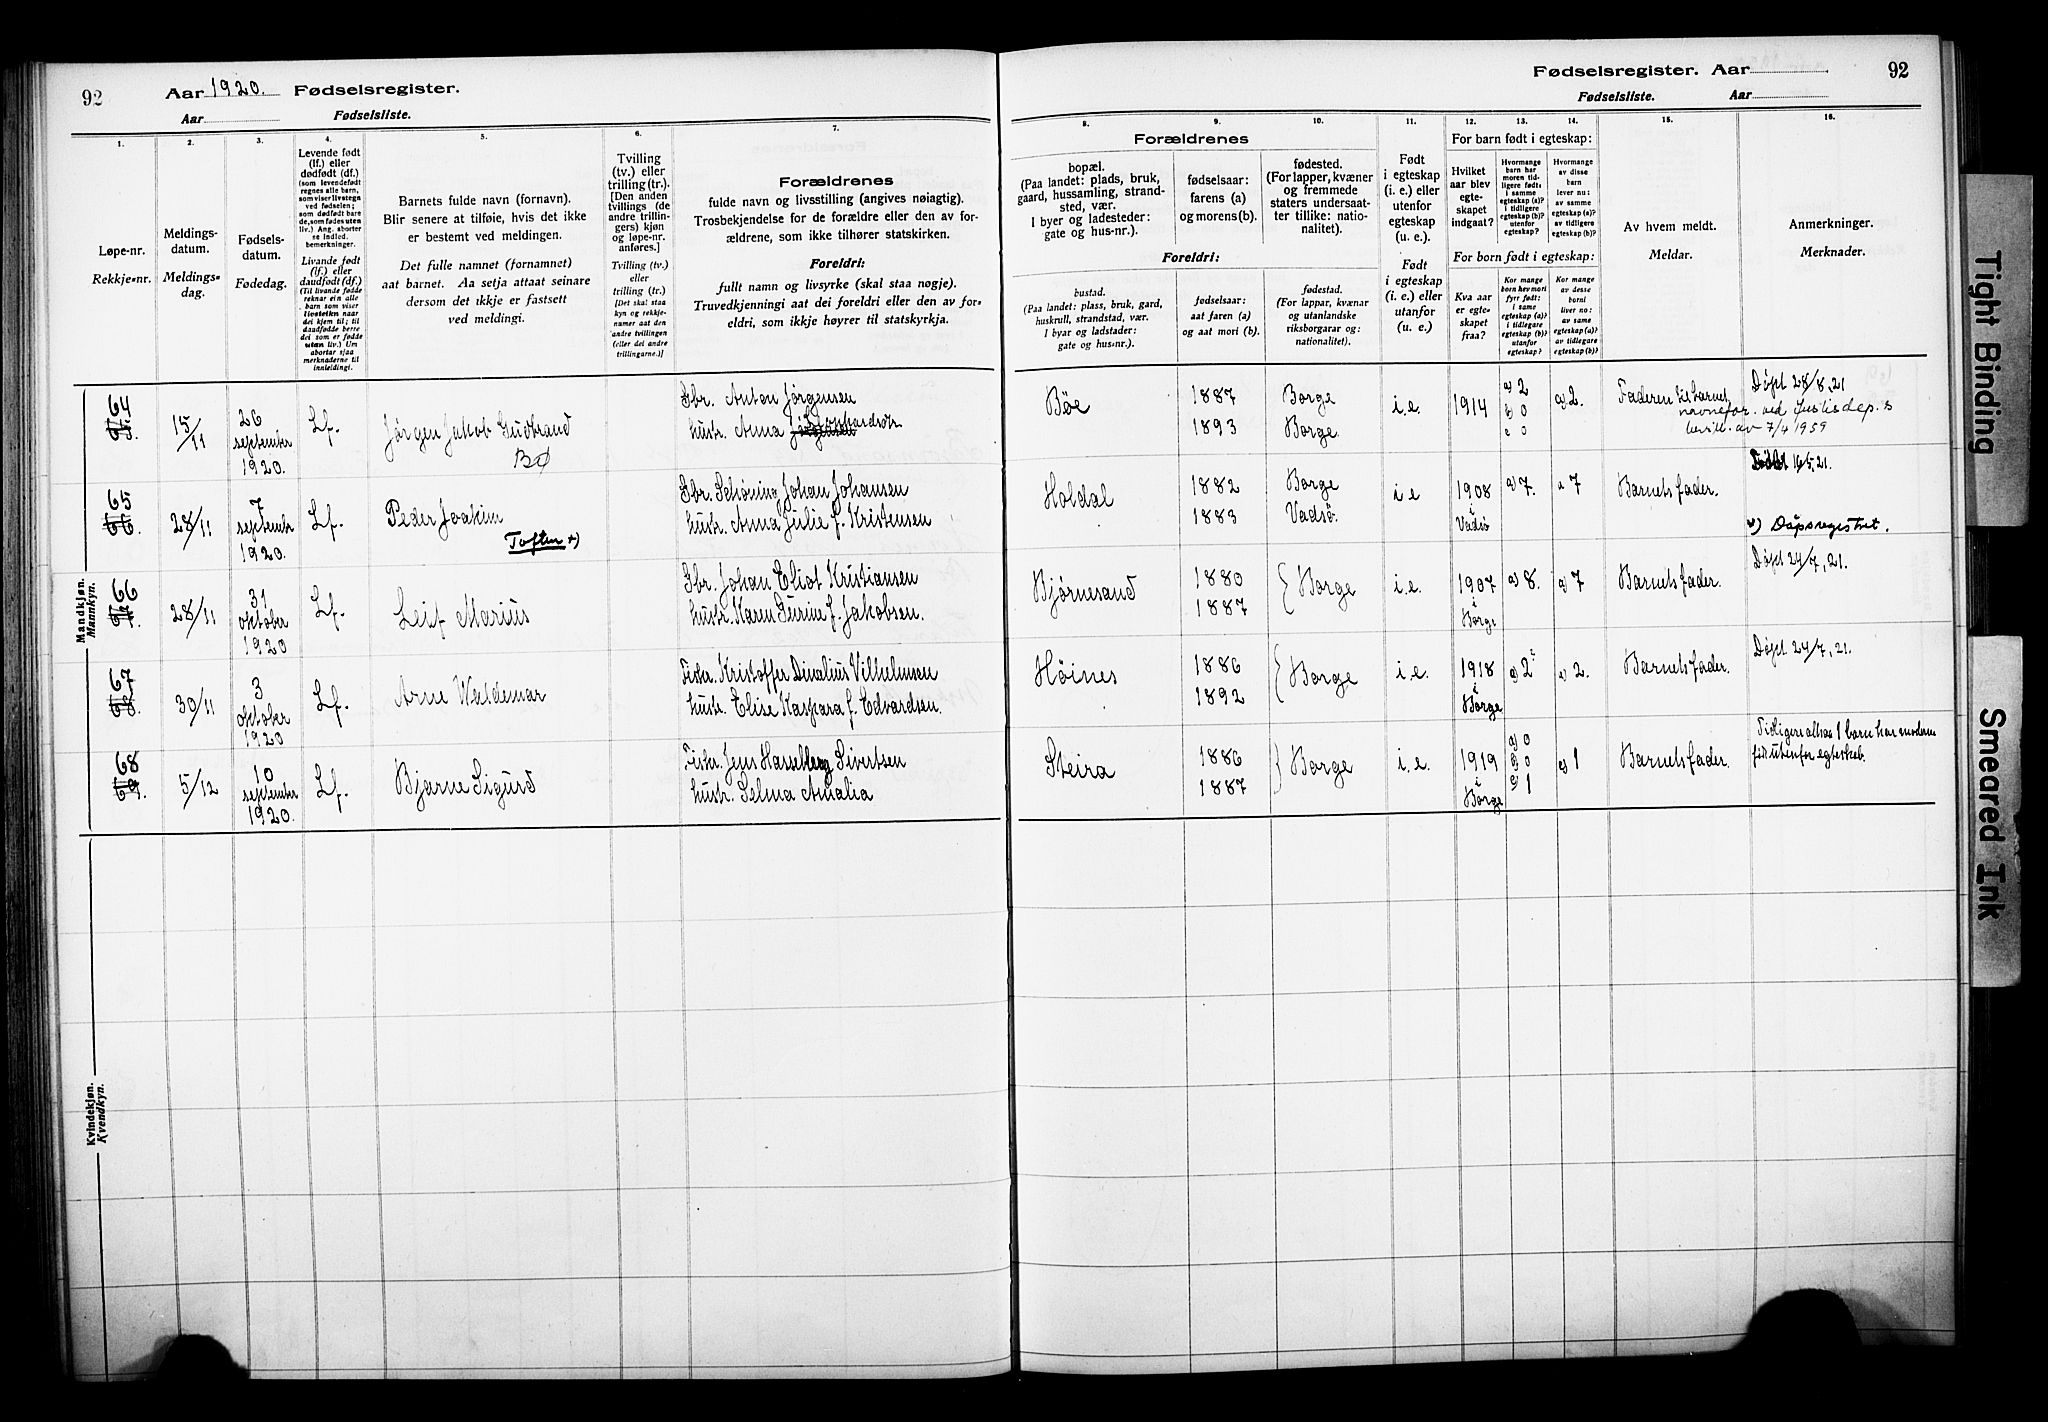 92
Aar 1920. Fødselsregister.
Aar Fødselsliste.
1.
Løpe-nr.
Rekkje-nr.
2.
Meldings-
datum.
Meldings-
dag.
3.
Fødsels-
datum.
Fødedag.
4.
Levende født
(lf.) eller
dødfødt (df.)
(som levendefødt
regnes alle barn,
som viser livstegn
ved fødselen;
som dødfødt bare
de, som fødes uten
liv.) Ang. aborter
se indled.
bemerkninger.
Livande født
(lf.) eller
daudfødt (df.)
(Til livande fødde
reknar ein alle
barn som viser
livsteikn naar
dei kjem til; til
daudfødde berre
dei som er fødde
utan liv.) Um
abortar sjaa
merknaderne til
innleidingi.
5.
Barnets fulde navn (fornavn).
Blir senere at tilføie, hvis det ikke
er bestemt ved meldingen.
Det fulle namnet (fornamnet)
aat barnet. Aa setja attaat seinare
dersom det ikkje er fastsett
ved meldingi.
6.
Tvilling
(tv.) eller
trilling (tr.).
[Den anden
tvillings (de
andre trillin-
gers) kjøn
og løpe-nr.
anføres.]
Tvilling (tv.)
eller
trilling (tr.)
[Det skal staa
kyn og rekkje-
numer aat den
andre tvillingen
(eller dei andre
trillingarne.)]
7.
Forældrenes
fulde navn og livsstilling (angives nøiagtig).
Trosbekjendelse for de forældre eller den av for-
ældrene, som ikke tilhører statskirken.
Foreldri:
fullt namn og livsyrke (skal staa nøgje).
Truvedkjenningi aat dei foreldri eller den av for-
eldri, som ikkje høyrer til statskyrkja.
Mandkjøn.
Mannkyn.
64
15/11
26
september
1920.
Lf.
Jørgen Jakob Gudbrand
Bø
Gbr. Anton Jørgensen
hustr. Anna
65
66.
28/11
7
september
1920.
Lf.
Peder Joakim
Toften x)
Gbr. Schöning Johan Johansen
hustr. Anna Julie f. Kristensen
66
28/11
31
oktober
1920
Lf.
Leif Marius
Gbr. Johan Eliot Kristiansen
hustr. Karen Gurine f. Jakobsen.
67
68.
30/11
3
oktober
1920
Lf.
Arne Waldemar
Fisker. Kristoffer Dinalius Vilhelmsen
hustr. Elise Kaspara f. Edvardsen.
68
69.
5/12
10
september
1920.
Lf.
Bjarne Sigurd
Fisker. Jens Hasselberg Sivertsen
hustr. Selma Amalia
Kvindekjøn.
Kvendkyn.
Fødselsregister. Aar 92
Fødselsliste. Aar
8.
Forældrenes
bopæl.
(Paa landet: plads, bruk,
gaard, hussamling, strand-
sted, vær.
I byer og ladesteder:
gate og hus-nr.).
Foreldri:
bustad.
(Paa landet: plass, bruk, gard,
huskrull, strandstad, vær.
I byar og ladstader:
gate og hus-nr.).
9.
fødselsaar:
farens (a)
og morens (b).
fødselsaar:
aat faren (a)
og aat mori (b).
10.
fødested.
(For lapper, kvæner
og fremmede
staters undersaat-
ter tillike: natio-
nalitet).
fødestad.
(For lappar, kvænar
og utanlandske
riksborgarar og:
nationalitet).
11.
Født
i egteskap
(i. e.) eller
utenfor
egteskap
(u. e.).
Født
i egteskap
(i. e.) eller
utanfor
(u. e.)
12. 13. 14.
For barn født i egteskap:
Hvilket
aar blev
egte-
skapet
indgaat?
Hvormange
barn har
moren tid-
ligere født:
i samme
egteskap (a)?
i tidligere
egteskap (b)?
utenfor
egteskap?
Hvormange
av disse
barn
lever nu:
av samme
egteskap (a)?
av tidligere
egteskap (b)?
For born født i egteskap:
Kva aar
er egte-
skapet
fraa?
Kor mange
born hev mori
fyrr født:
i same
egteskap (a)?
i tidlegare
egteskap (b)?
utanfor
egteskap?
Kor mange
av desse
borni
liver no:
av same
egteskap (a)?
av tidlegare
egteskap (b)?
15.
Av hvem meldt.
Meldar.
16.
Anmerkninger.
Merknader.
Bøe
1887
1893
Borge
Borge
i.e.
1914
a) 2
b) 0
c 0
a) 2.
Faderen til barnet
Døpt 28/8. 21
navnefor. ved Justisdep.s
bevill. av 7/4 1959
Holdal
1882
1883
Borge
Vadsö.
i.e
1908
i
Vadsö
a) 7.
a 7
Barnets fader.
16/5. 21.
x) Dåpsregistret.
Bjørnesand
1880
1887
Borge
i.e.
1907
i
Borge
a) 8.
a) 7
Barnets fader.
Døpt 24/7, 21.
Höines
1886
1892
Borge
i.e.
1918
i
Borge
a) 2
a) 2.
Barnets fader.
Døpt 24/7, 21.
Steira
1886
1887
Borge
i.e.
1919
i
Borge
a) 0
b) 0
c) 1
a) 1
Barnets fader.
Tidligere altsaa 1 barn har moderen
født utenfor egteskab.
Tight Binding
Smeared Ink